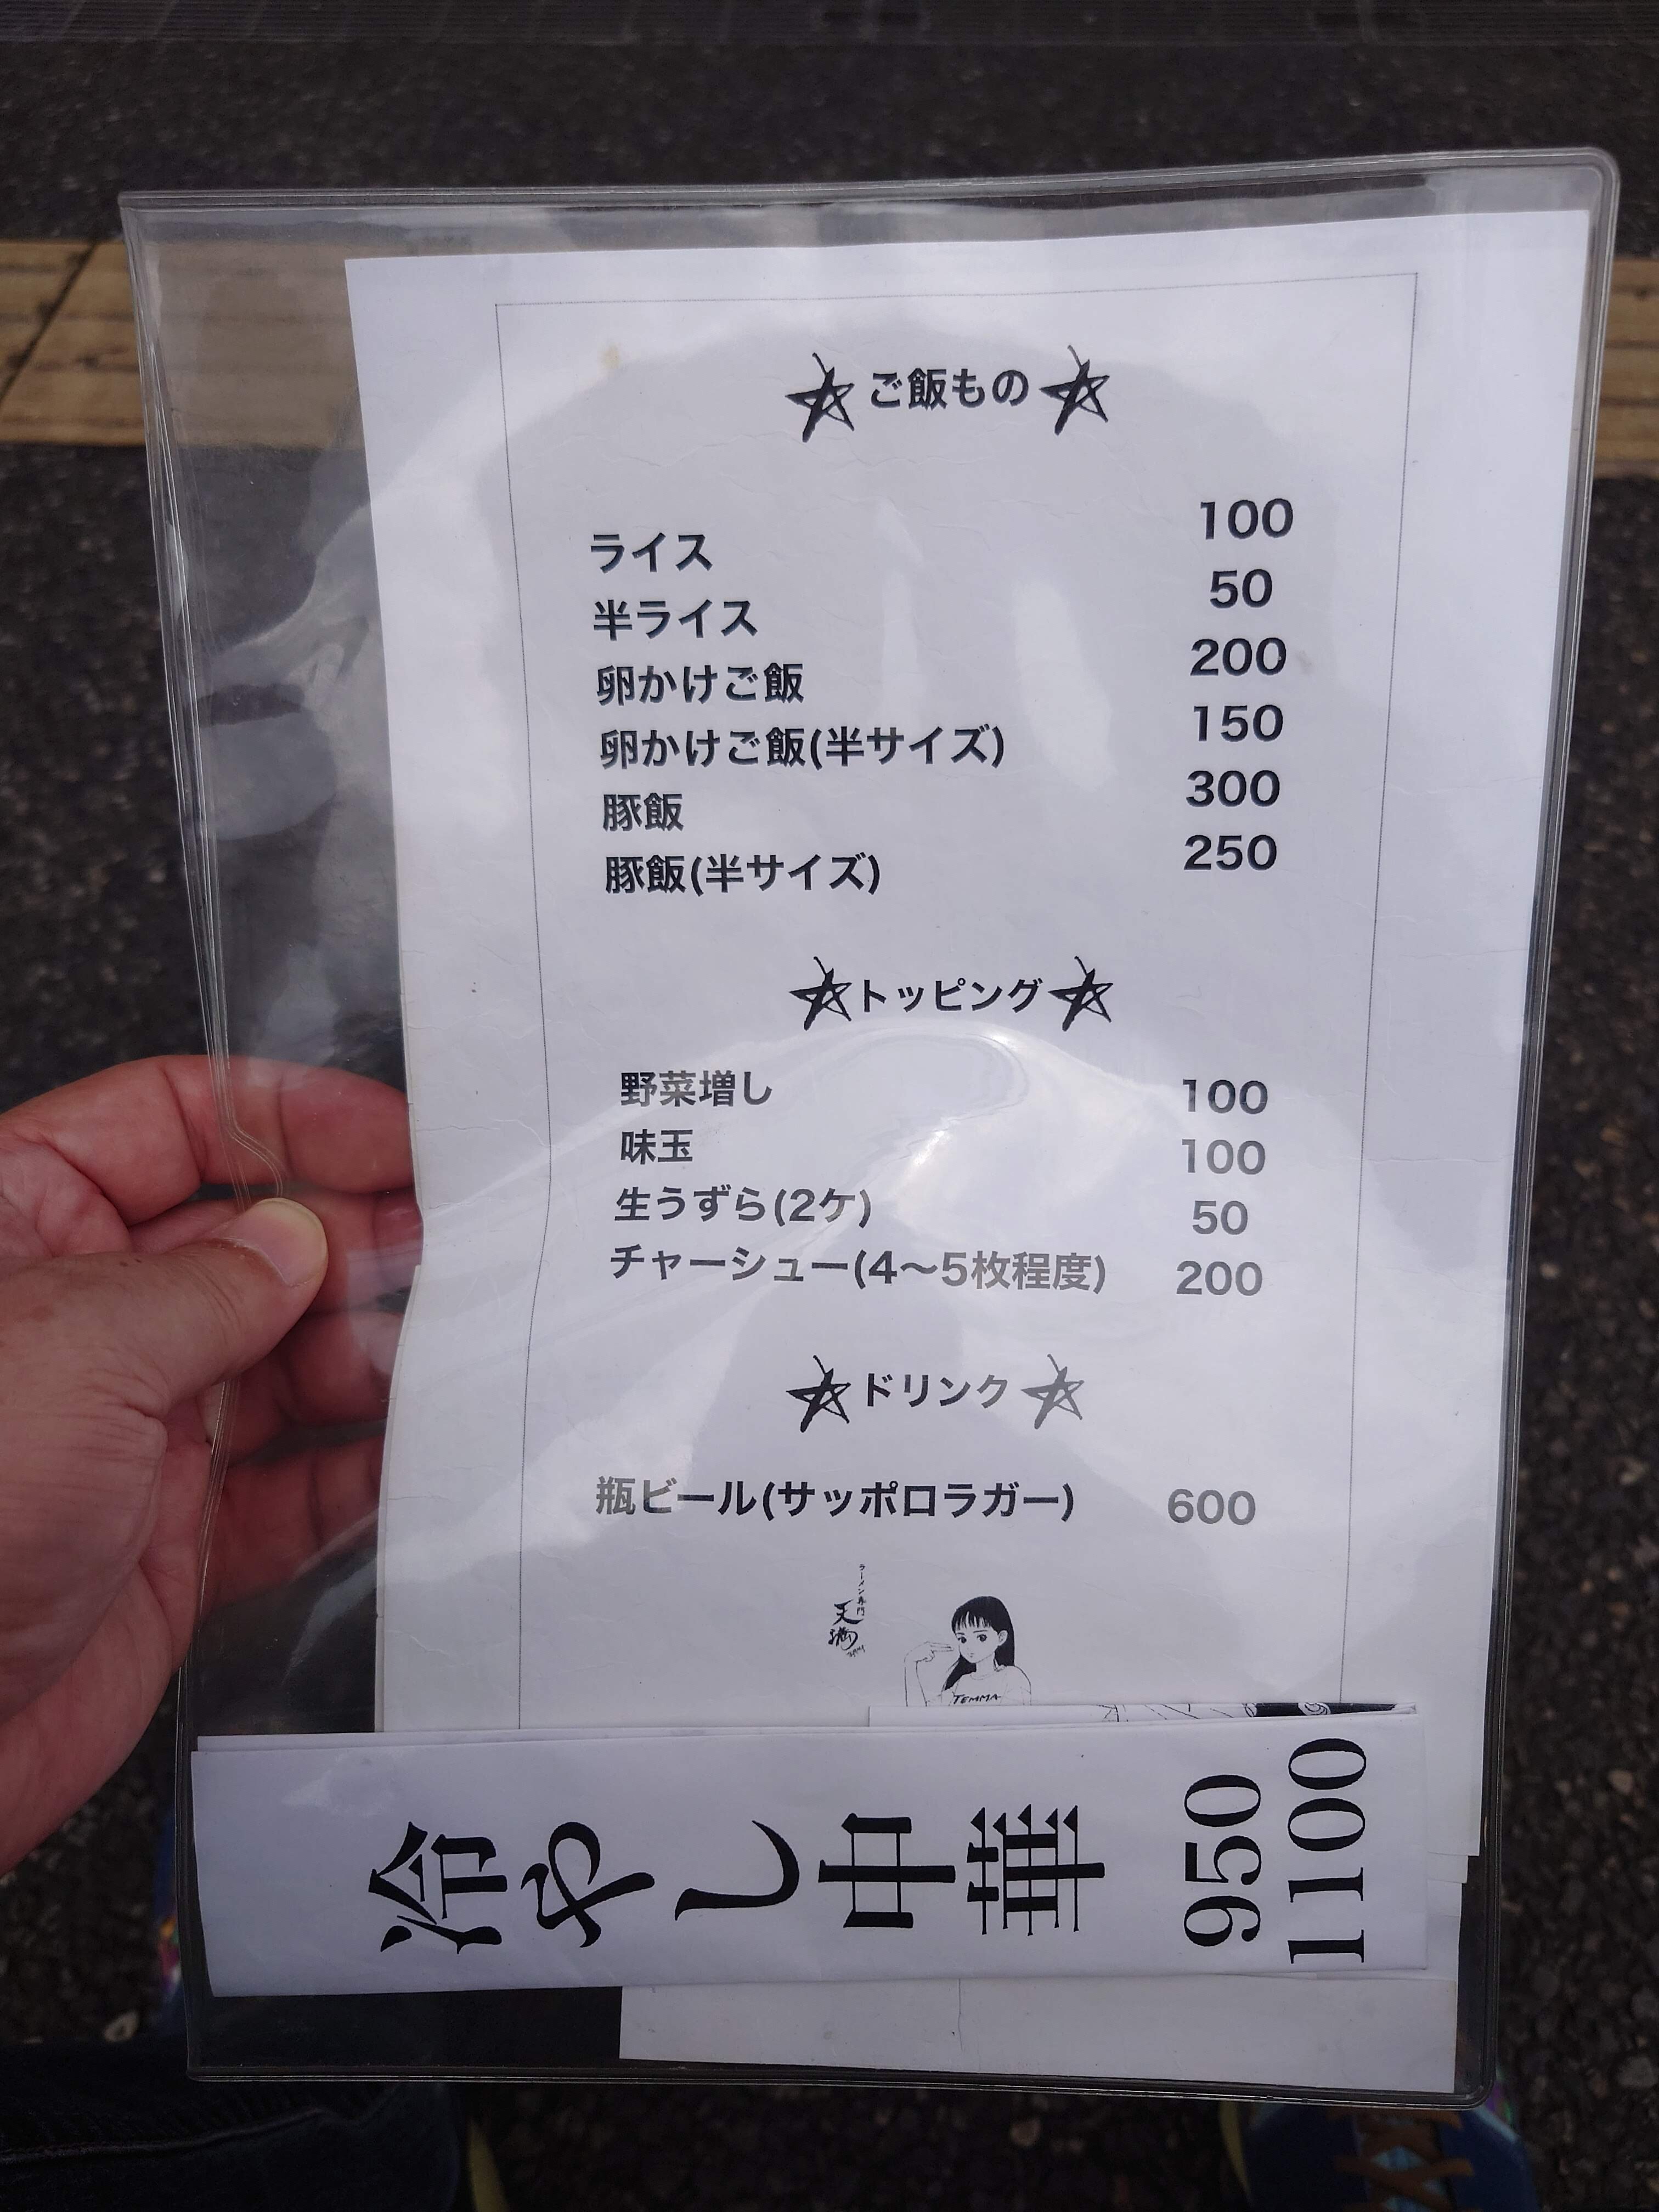 ご飯もの
ライス 100
半ライス 50
卵かけご飯 200
卵かけご飯(半サイズ) 150
豚飯 300
豚飯(半サイズ) 250
トッピング
野菜増し 100
味玉 100
生うずら(2ケ) 50
チャーシュー(4〜5枚程度) 200
ドリンク
瓶ビール(サッポロラガー) 600
ラーメン専門
天満
TEMMA
冷やし中華
950
1100